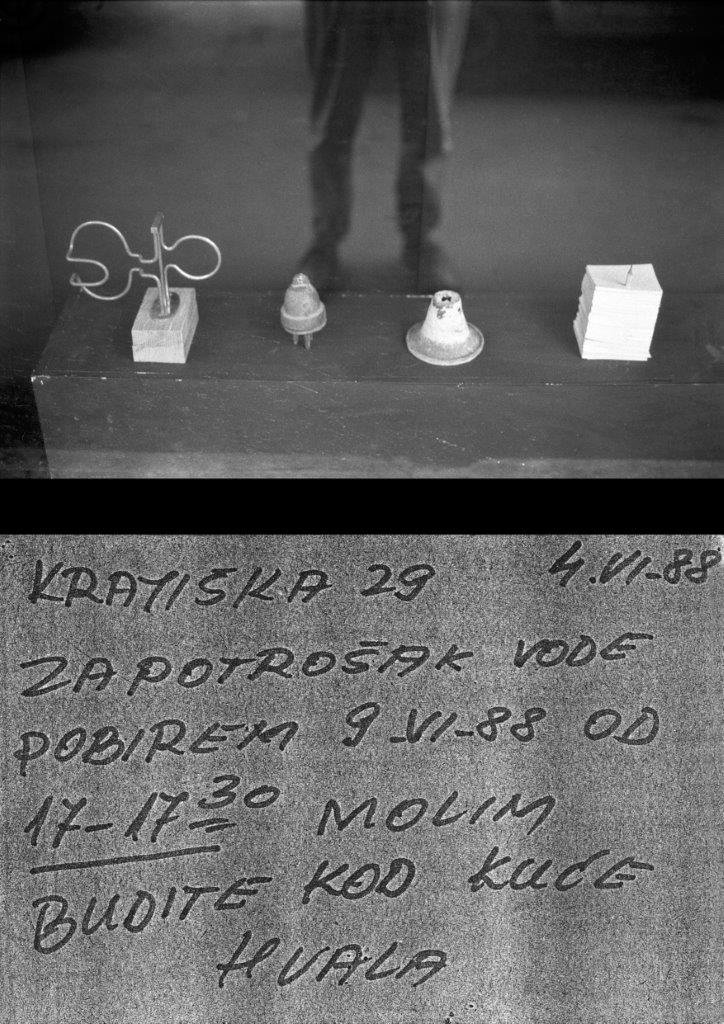 KRAJIŠKA 29 4.VI-88
ZA POTROŠAK VODE
POBIREM 9.VI-88 OD
17-17 30 MOLIM
BUDITE KOD KUĆE
HVALA